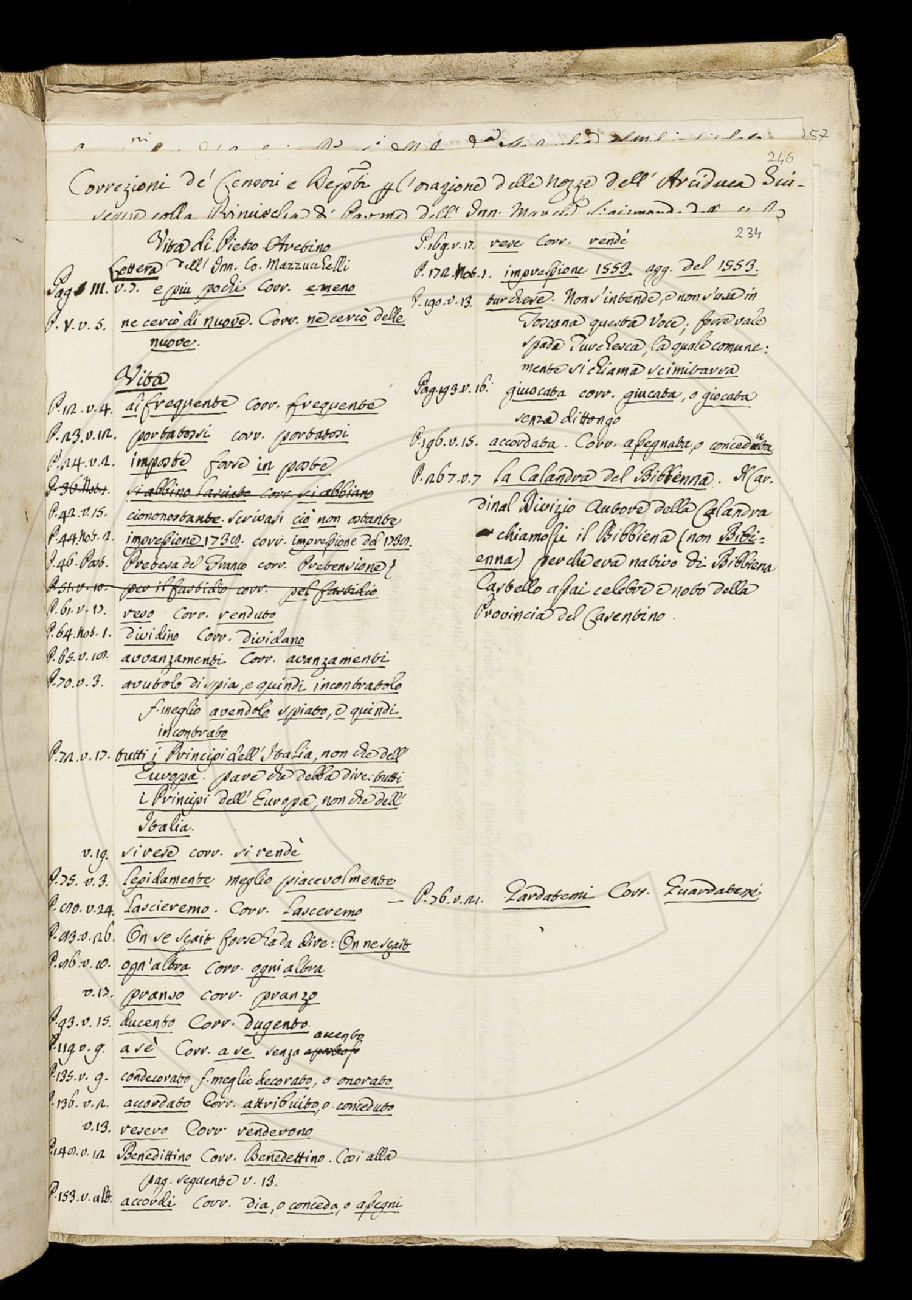 257
246
Correzioni de' Censori e Dep.ti p l'orazione delle Nozze dell' Arciduca Giu-
seppe colla Principessa di Parma dell' Inn. March.
234
Vita di Pietro Aretino
Lettera dell' Inn. Co. Mazzuchelli
Pag. III. v. 7. e piu pochi Corr. e meno
P. V. v. 5. ne cercò di nuove. Corr. nè cercò delle
nuove.
Vita
P. 12. v. 4. di frequente Corr. frequente
P. 23. v. 12. portatossi corr. portatosi
P. 24. v. 2. imposte forse in poste
P. 36. Not. si abbino lasciato corr. si abbiano
P. 42. v. 15. ciononostante. scrivasi ciò non ostante
P. 44. Not. 2. impressione 1739. corr. impressione del 1739.
P. 46. Post. Pretesa del Franco corr. Pretensione
P. 51. v. 10. per il fastidio corr. pel fastidio
P. 61. v. 13. reso corr. renduto
P. 64. Not. 1. dividino Corr. dividano
P. 65. v. 19. avvanzamenti Corr. avanzamenti
P. 70. v. 3. avutolo di spia, e quindi incontratolo
f. meglio avendolo spiato, e quindi
incontrato
P. 72. v. 17. tutti i Principi dell' Italia, non che dell'
Europa. pare che debba dire: tutti
i Principi dell' Europa, non che dell'
Italia.
v. 19. si rese corr. si rendè
P. 75. v. 3. lepidamente meglio piacevolmente
v. 24. Lascieremo. Corr. Lasceremo
v. 26. On se sçait forse ha da dire: On ne sçait
v. 10. ogn'altra corr. ogni altra
v. 13. pranso corr. pranzo
P. 93. v. 15. ducento Corr. dugento
P. 119. v. 9. a sè Corr. a se senza accento
P. 135. v. 9. condecorato f. meglio decorato, o onorato
P. 136. v. 2. accordato Corr. attribuito, o conceduto
v. 13. resero Corr. renderono
v. 12 Benedittino Corr. Benedettino. Così alla
pag. seguente v. 13.
P. 153. v. ult. accordi Corr. dia, o conceda, o assegni
P. 169. v. 17. rese Corr. rendè
P. 172. Not. 1. impressione 1553. agg. del 1553.
P. 190. v. 13. turchese. Non s'intende, e non s'usa in
Toscana questa voce; forse vale
spada Turchesca, la quale comune:
mente si chiama scimitarra
Pag. 193. v. 16. giuocata corr. giucata, o giocata
senza dittongo
P. 196. v. 15. accordata. Corr. assegnata, o conceduta
P. 267. v. 7 la Calandra del Bibbienna. Il Car-
dinal Divizio Autore della Calandra
chiamossi il Bibbiena (non Bibi-
enna) perchè era nativo di Bibbiena
Castello assai celebre e noto della
Provincia del Casentino.
— P. 76. v. 21. Gardatemi Corr. Guardatemi